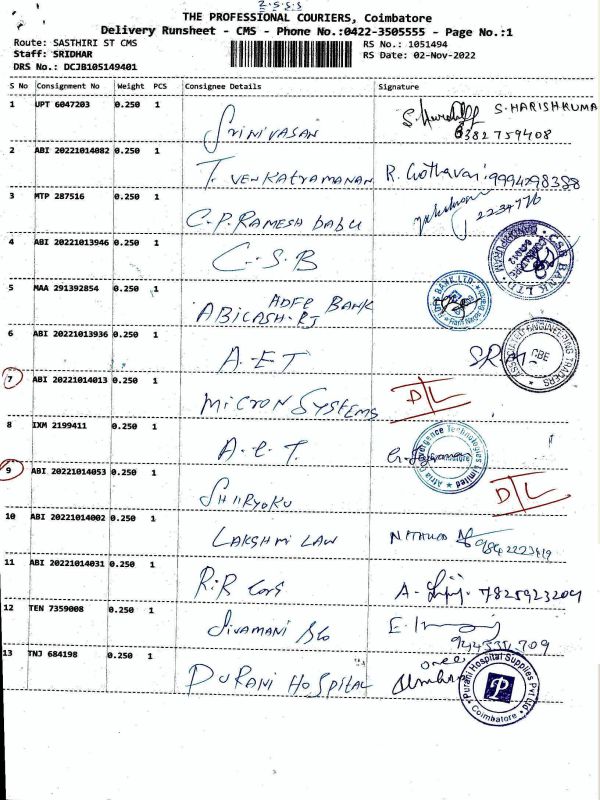 2-S-S-S
THE PROFESSIONAL COURIERS, Coimbatore
Delivery Runsheet - CMS - Phone No.:0422-3505555 - Page No.:1
Route: SASTHIRI ST CMS RS No.: 1051494
Staff: SRIDHAR RS Date: 02-Nov-2022
DRS No.: DCJB105149401
S No Consignment No Weight PCS Consignee Details Signature
1 UPT 6047203 0.250 1 Srinivasan S. HARISHKUMA
6382759408
2 ABI 20221014082 0.250 1 T. VENKATRAMANAN R. Gothavari 9994298388
3 MTP 287516 0.250 1 C.P. RAMESH babu
4 ABI 20221013946 0.250 1 C.S.B CSB BANK LTD
5 MAA 291392854 0.250 1 HDFC BANK BANK LTD
ABICASH.RJ
6 ABI 20221013936 0.250 1 A.ET ENGINEERING TRADERS CBE
7 ABI 20221014013 0.250 1 MICRON SYSTEMS D/L
8 IXM 2199411 0.250 1 A.e.T. Technologies Limited
9 ABI 20221014053 0.250 1 SHIRYOKU D/L
10 ABI 20221014002 0.250 1 LAKSHMI LAW
11 ABI 20221014031 0.250 1 R.R A.
12 TEN 7359008 0.250 1 Sivamani E.
13 TNJ 684198 0.250 1 PURANI HOSPITAL Purani Hospital Supplies Pvt Ltd P Coimbatore